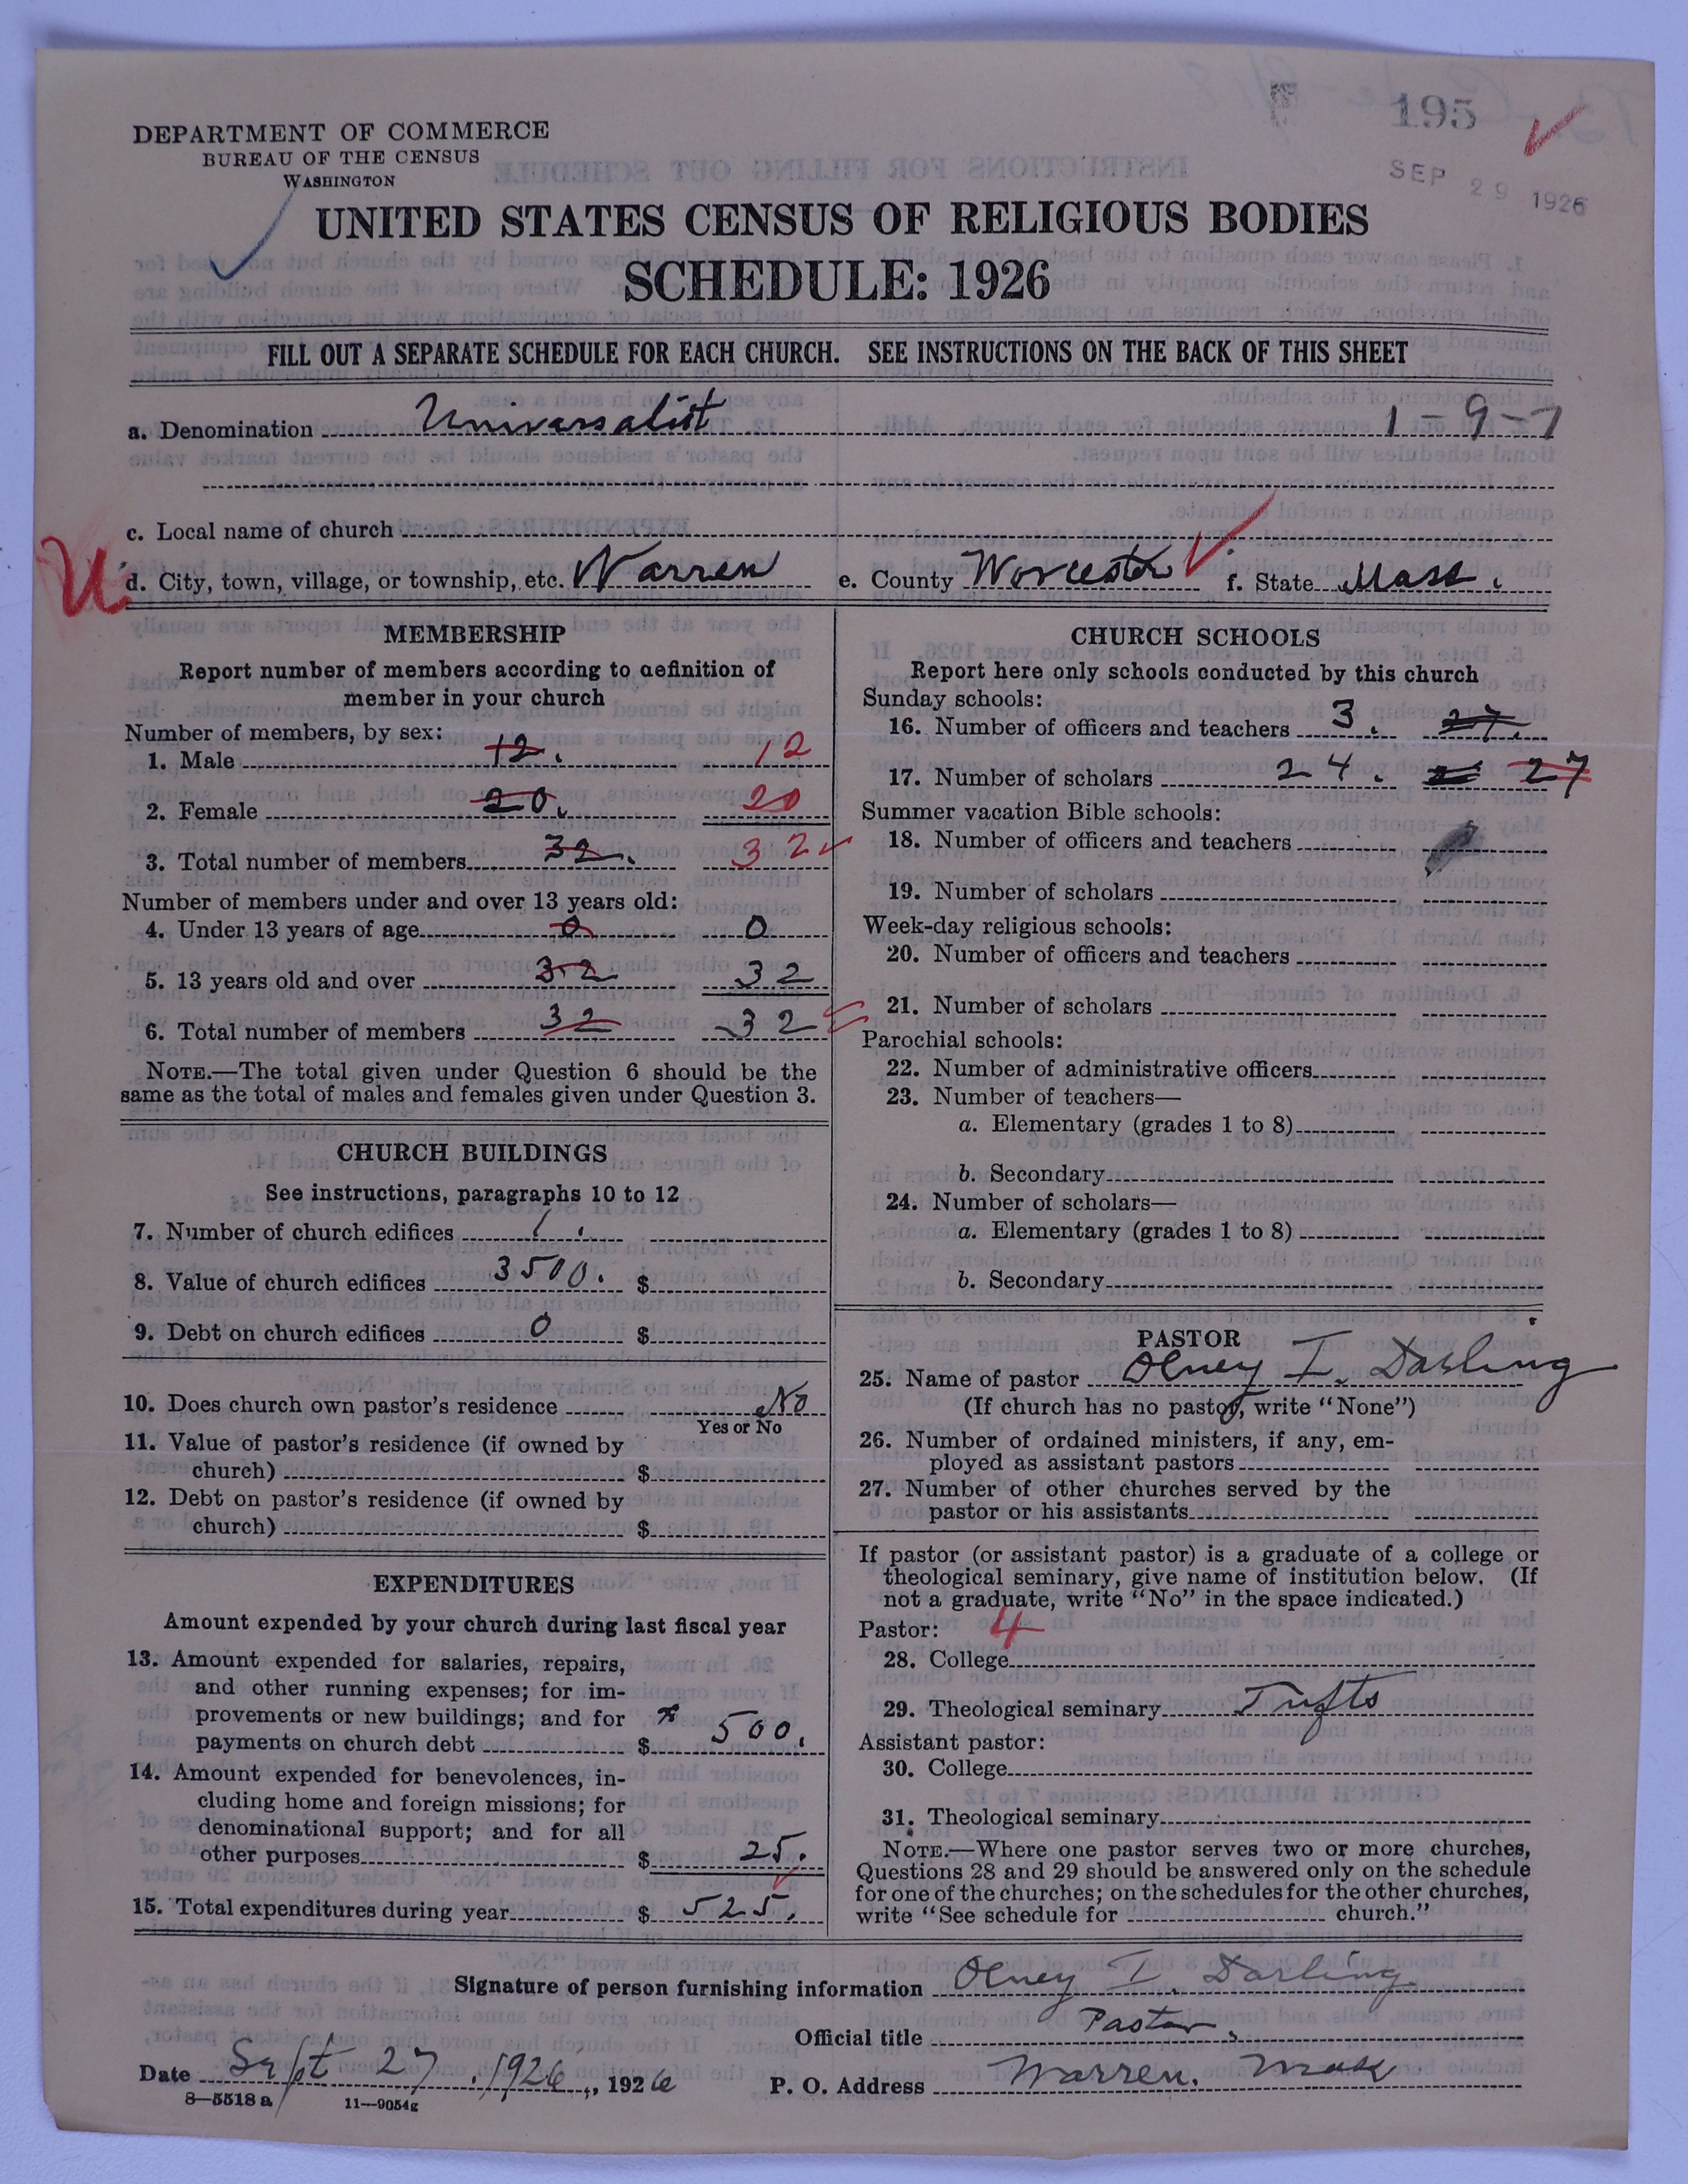 195
SEP 29 1926
DEPARTMENT OF COMMERCE
BUREAU OF THE CENSUS
WASHINGTON
UNITED STATES CENSUS OF RELIGIOUS BODIES
SCHEDULE: 1926
FILL OUT A SEPARATE SCHEDULE FOR EACH CHURCH. SEE INSTRUCTIONS ON THE BACK OF THIS SHEET
a. Denomination Universalist 1-9-7
c. Local name of church
U
d. City, town, village, or township, etc. Warren e. County Worcester f. State Mass.
MEMBERSHIP
Report number of members according to definition of
member in your church
Number of members, by sex:
1. Male 12. 12
2. Female 20. 20
3. Total number of members 32. 32
Number of members under and over 13 years old:
4. Under 13 years of age 0 0
5. 13 years old and over 32 32
6. Total number of members 32 32
NOTE.—The total given under Question 6 should be the
same as the total of males and females given under Question 3.
CHURCH BUILDINGS
See instructions, paragraphs 10 to 12
7. Number of church edifices 1.
8. Value of church edifices 3500. $
9. Debt on church edifices 0 $
10. Does church own pastor's residence No
Yes or No
11. Value of pastor's residence (if owned by
church) $
12. Debt on pastor's residence (if owned by
church) $
EXPENDITURES
Amount expended by your church during last fiscal year
13. Amount expended for salaries, repairs,
and other running expenses; for im-
provements or new buildings; and for
payments on church debt $ 500.
14. Amount expended for benevolences, in-
cluding home and foreign missions; for
denominational support; and for all
other purposes $ 25.
15. Total expenditures during year $ 525.
CHURCH SCHOOLS
Report here only schools conducted by this church
Sunday schools:
16. Number of officers and teachers 3. 27.
17. Number of scholars 24. 27
Summer vacation Bible schools:
18. Number of officers and teachers
19. Number of scholars
Week-day religious schools:
20. Number of officers and teachers
21. Number of scholars
Parochial schools:
22. Number of administrative officers
23. Number of teachers—
a. Elementary (grades 1 to 8)
b. Secondary
24. Number of scholars—
a. Elementary (grades 1 to 8)
b. Secondary
PASTOR
25. Name of pastor Olney I. Darling
(If church has no pastor, write "None")
26. Number of ordained ministers, if any, em-
ployed as assistant pastors
27. Number of other churches served by the
pastor or his assistants
If pastor (or assistant pastor) is a graduate of a college or
theological seminary, give name of institution below. (If
not a graduate, write "No" in the space indicated.)
Pastor: 4
28. College
29. Theological seminary Tufts
Assistant pastor:
30. College
31. Theological seminary
NOTE.—Where one pastor serves two or more churches,
Questions 28 and 29 should be answered only on the schedule
for one of the churches; on the schedules for the other churches,
write "See schedule for church."
Signature of person furnishing information Olney I. Darling
Official title Pastor.
Date Sept 27, 1926, 1926 P. O. Address Warren. Mass
8—5518 a 11—9054g